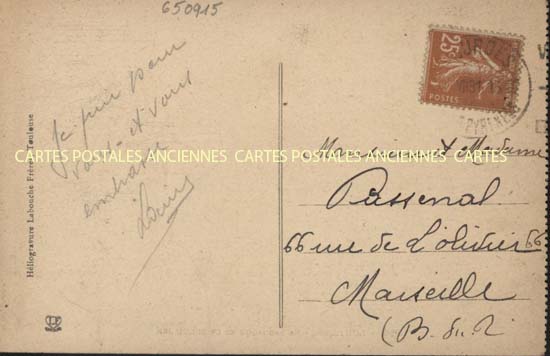 650915
25c
POSTES
PYRENEES
Je pour
vous et vous
embrasse
Louis
CARTES POSTALES ANCIENNES CARTES POSTALES ANCIENNES CARTES POSTALES ANCIENNES
Héliogravure Labouche Frères Toulouse
Monsieur et Madame
Passenal
66 rue de l'olivier 66
Marseille
(B. du R